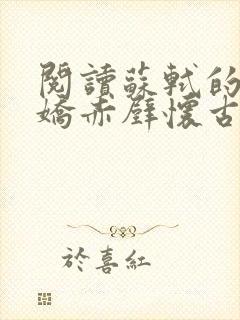 閱讀蘇軾的
嬌赤壁懷古
於喜紅